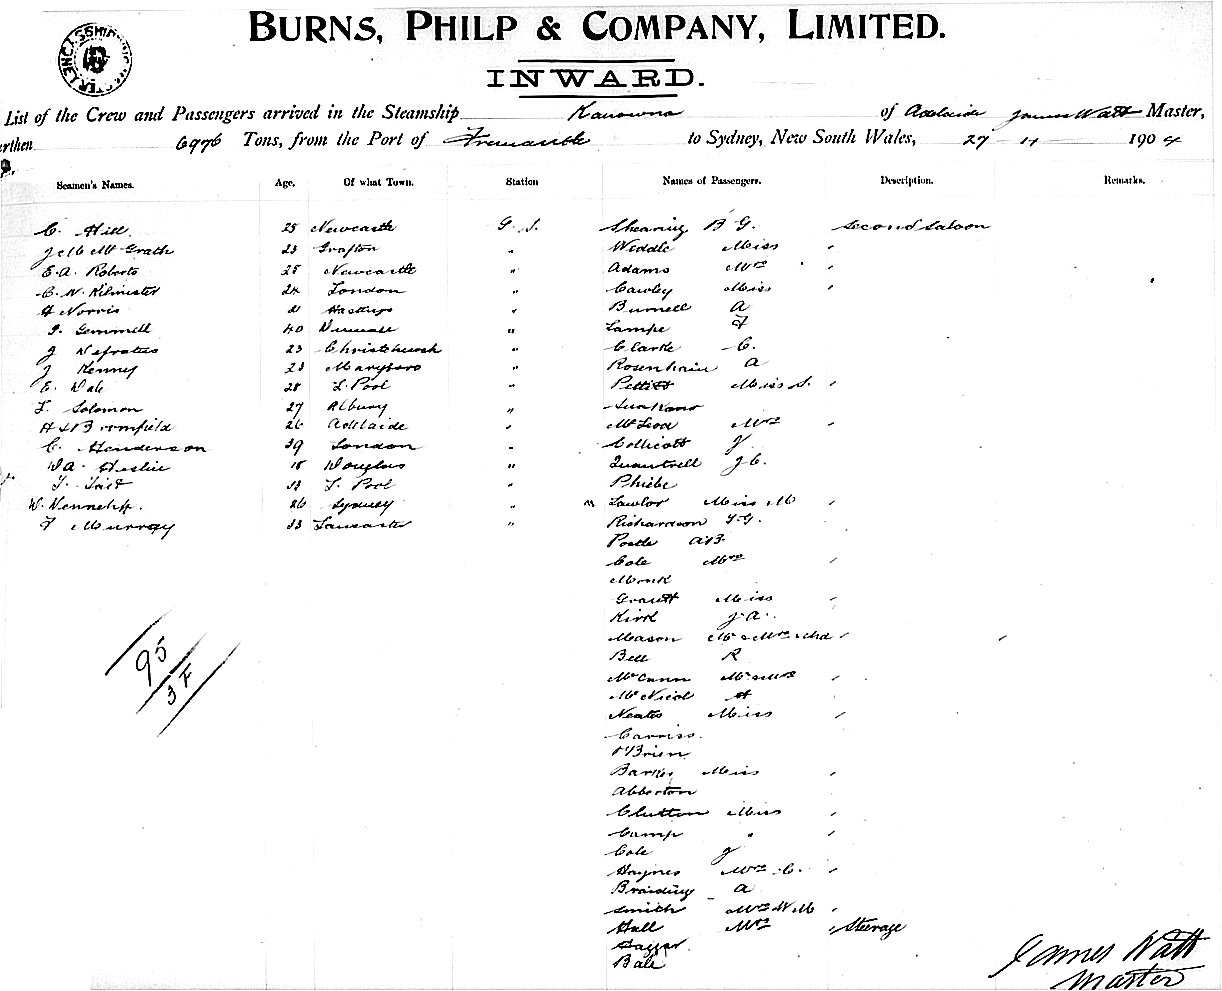 BURNS, PHILP & COMPANY, LIMITED.
INWARD.
List of the Crew and Passengers arrived in the Steamship Kanowna of Adelaide James Watt Master,
rthen 6976 Tons, from the Port of Fremantle to Sydney, New South Wales, 27 11 1904
Seamen's Names. Age. Of what Town. Station Names of Passengers. Description. Remarks.
C. Hill 25 Newcastle G. S. Shearing B G. Second Saloon
J McGrath 23 Grafton " Weddle Miss '
E. A. Roberts 25 Newcastle " Adams Mrs '
C. W. Kilminster 24 London " Cawley Miss '
H Norris 21 Hastings " Burnell A
Gemmell 40 " Lampe F
J 23 Christchurch " Clarke C.
J Kenney 23 Maryboro " Rosenhain A
E. Dale 28 L. Pool " Pettitt Miss S. '
L. Solomon 27 Albury "
Bromfield 26 Adelaide " McLeod Mrs '
C. Henderson 39 London " Collicott J
18 Douglas " Quantrell J C.
T. Tait 33 L. Pool " Phiebe
W. 26 Sydney " " Lawlor Miss M '
F Murray 33 Lancaster " Richardson T. G.
Postle A B.
Cole Mrs '
Monk
Miss '
Kirk J. A.
Mason Mr & Mrs & Chd '
Bell R
McCann Mr & Mrs '
McNicol H
Neates Miss '
Carriss.
O'Brien
Barker Miss '
Abberton
Clutton Miss '
Camp " '
Cole J
Haynes Mrs C. '
Braiding A
Smith Mrs W M '
Hall Mrs ' Steerage
Haggar
Bale
95
3F
James Watt
Master